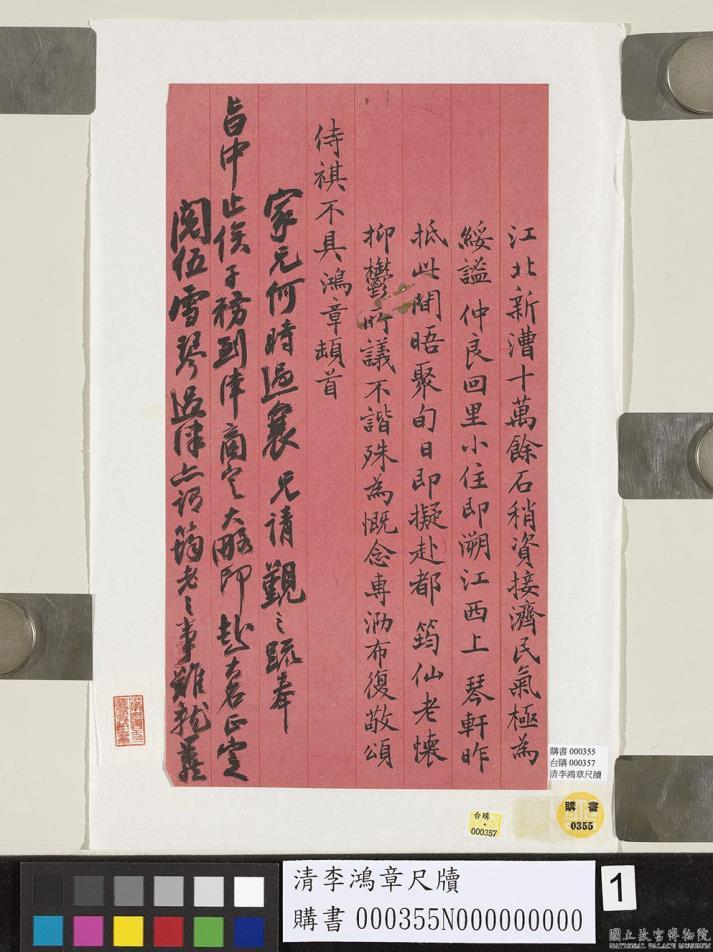 江北新漕十萬餘石稍資接濟民氣極為
綏謐 仲良回里小住即溯江西上 琴軒昨
抵此間晤聚旬日即擬赴都 筠仙老懷
抑鬱所議不諧殊為慨念專泐布復敬頌
侍祺不具鴻章頓首
家兄何時過襄 兄請覲之疏奉
旨中止俟子務到津商定大略即赴大名正定
閱伍雪琴過津亦謂筠老之事難就蓋
購書 000355
台購 000357
清李鴻章尺牘
台購
000357
購書
0355
清李鴻章尺牘
購書 000355N000000000
1
國立故宮博物院
NATIONAL PALACE MUSEUM